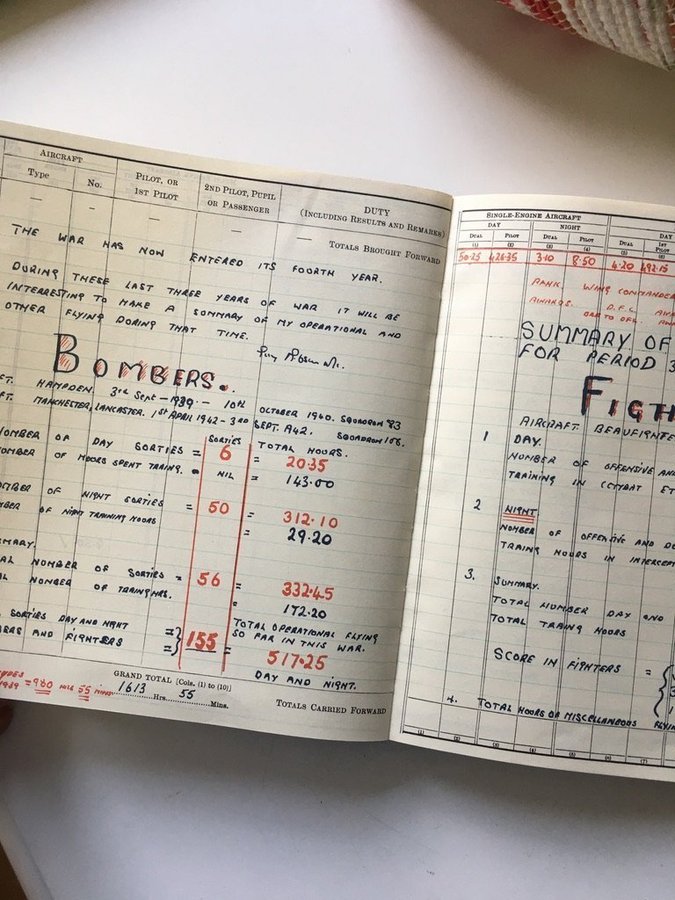 AIRCRAFT
Type
No.
PILOT, OR
1ST PILOT
2ND PILOT, PUPIL
OR PASSENGER
DUTY
(INCLUDING RESULTS AND REMARKS)
— — — — —
TOTALS BROUGHT FORWARD
THE WAR HAS NOW ENTERED ITS FOURTH YEAR.
DURING THESE LAST THREE YEARS OF WAR IT WILL BE
INTERESTING TO MAKE A SUMMARY OF MY OPERATIONAL AND
OTHER FLYING DURING THAT TIME.
BOMBERS.
FT. HAMPDEN. 3rd Sept - 1939 - 10th OCTOBER 1940. SQUADRON 83
FT. MANCHESTER, LANCASTER. 1st APRIL 1942 - 3rd SEPT. 1942. SQUADRON 106.
SORTIES
TOTAL HOURS.
NUMBER OF DAY SORTIES = 6 = 20·35
NUMBER OF HOURS SPENT TRAING. = NIL = 143·00
NUMBER OF NIGHT SORTIES = 50 = 312·10
NUMBER OF NIGHT TRAINING HOURS = 29.20
MARY.
AL NUMBER OF SORTIES = 56 = 332·45
AL NUMBER OF TRAING HRS. " 172·20
SORTIES DAY AND NIGHT
BERS AND FIGHTERS
=} 155 =
TOTAL OPERATIONAL FLYING
SO FAR IN THIS WAR.
517·25
DAY AND NIGHT.
GRAND TOTAL [Cols. (1) to (10)]
1613 Hrs. 55 Mins.
TOTALS CARRIED FORWARD
YPES
1939 = 980 HRS 55 MINS
SINGLE-ENGINE AIRCRAFT
DAY
NIGHT
DAY
DUAL
PILOT
DUAL
PILOT
DUAL
1ST
PILOT
(1) (2) (3) (4) (5) (6)
50·25 426·35 3·10 8·50 4·20 492·15
RANK. WING COMMANDER
AWARDS. D.F.C.
SUMMARY OF
FOR PERIOD 3
FIGTH
AIRCRAFT BEAUFIGHTE
1 DAY.
NUMBER OF OFFENSIVE AND
TRAINING IN COMBAT ET
2 NIGHT
NUMBER OF OFFENSIVE AND DE
TRAING HOURS IN INTERCEPT
3. SUMMARY.
TOTAL NUMBER DAY AND
TOTAL TRAING HOURS
SCORE IN FIGHTERS = {
4. TOTAL HOURS OF MISCELLANEOUS FLYIN
(1) (2) (3) (4) (5) (6)